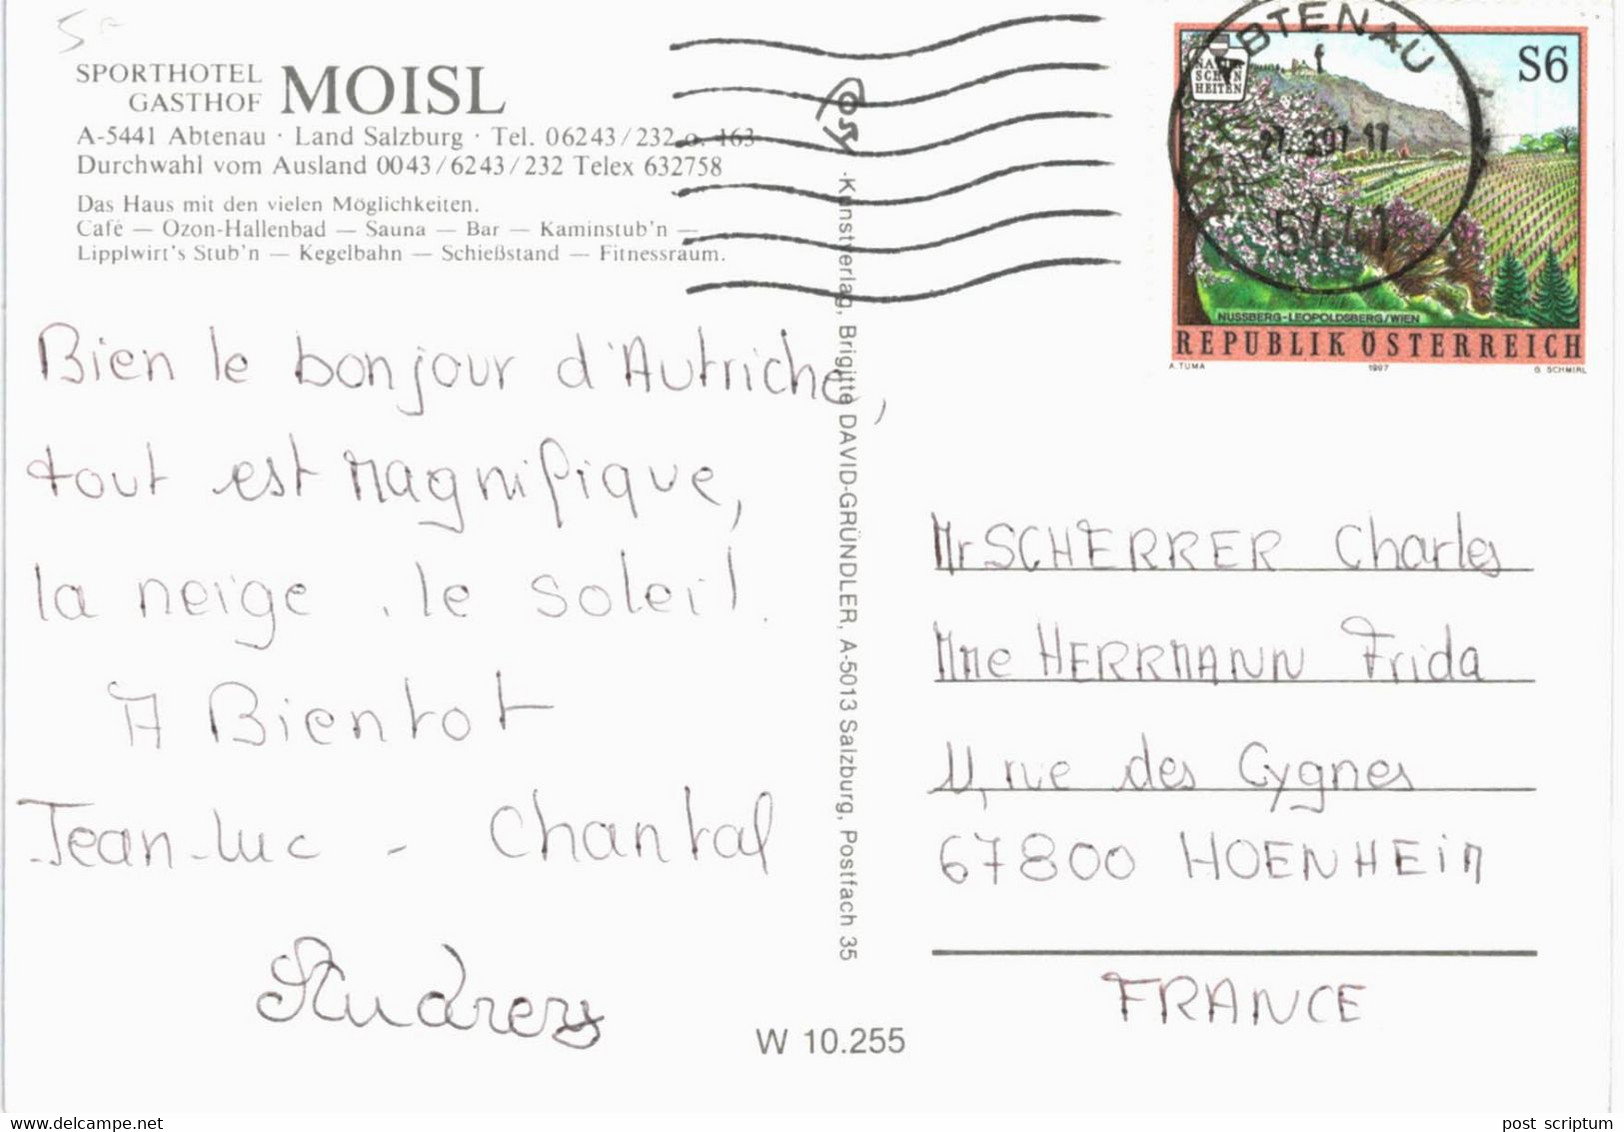 SPORTHOTEL
GASTHOF MOISL
A-5441 Abtenau · Land Salzburg · Tel. 06243/232 o. 163
Durchwahl vom Ausland 0043/6243/232 Telex 632758
Das Haus mit den vielen Möglichkeiten.
Café — Ozon-Hallenbad — Sauna — Bar — Kaminstub'n —
Lipplwirt's Stub'n — Kegelbahn — Schießstand — Fitnessraum.
Bien le bonjour d'Autriche,
tout est magnifique,
la neige, le soleil.
A Bientot
Jean-Luc - Chantal
Audrey
Kunstverlag, Brigitte DAVID-GRÜNDLER, A-5013 Salzburg, Postfach 35
W 10.255
ABTENAU
27. 3.97-17
5441
NATUR
SCHÖN
HEITEN
S6
NUSSBERG-LEOPOLDSBERG/WIEN
REPUBLIK ÖSTERREICH
A. TUMA 1997 G. SCHMIRL
Mr SCHERRER Charles
Mme HERRMANN Frida
11, rue des Cygnes
67800 HOENHEIM
FRANCE
www.delcampe.net
post scriptum